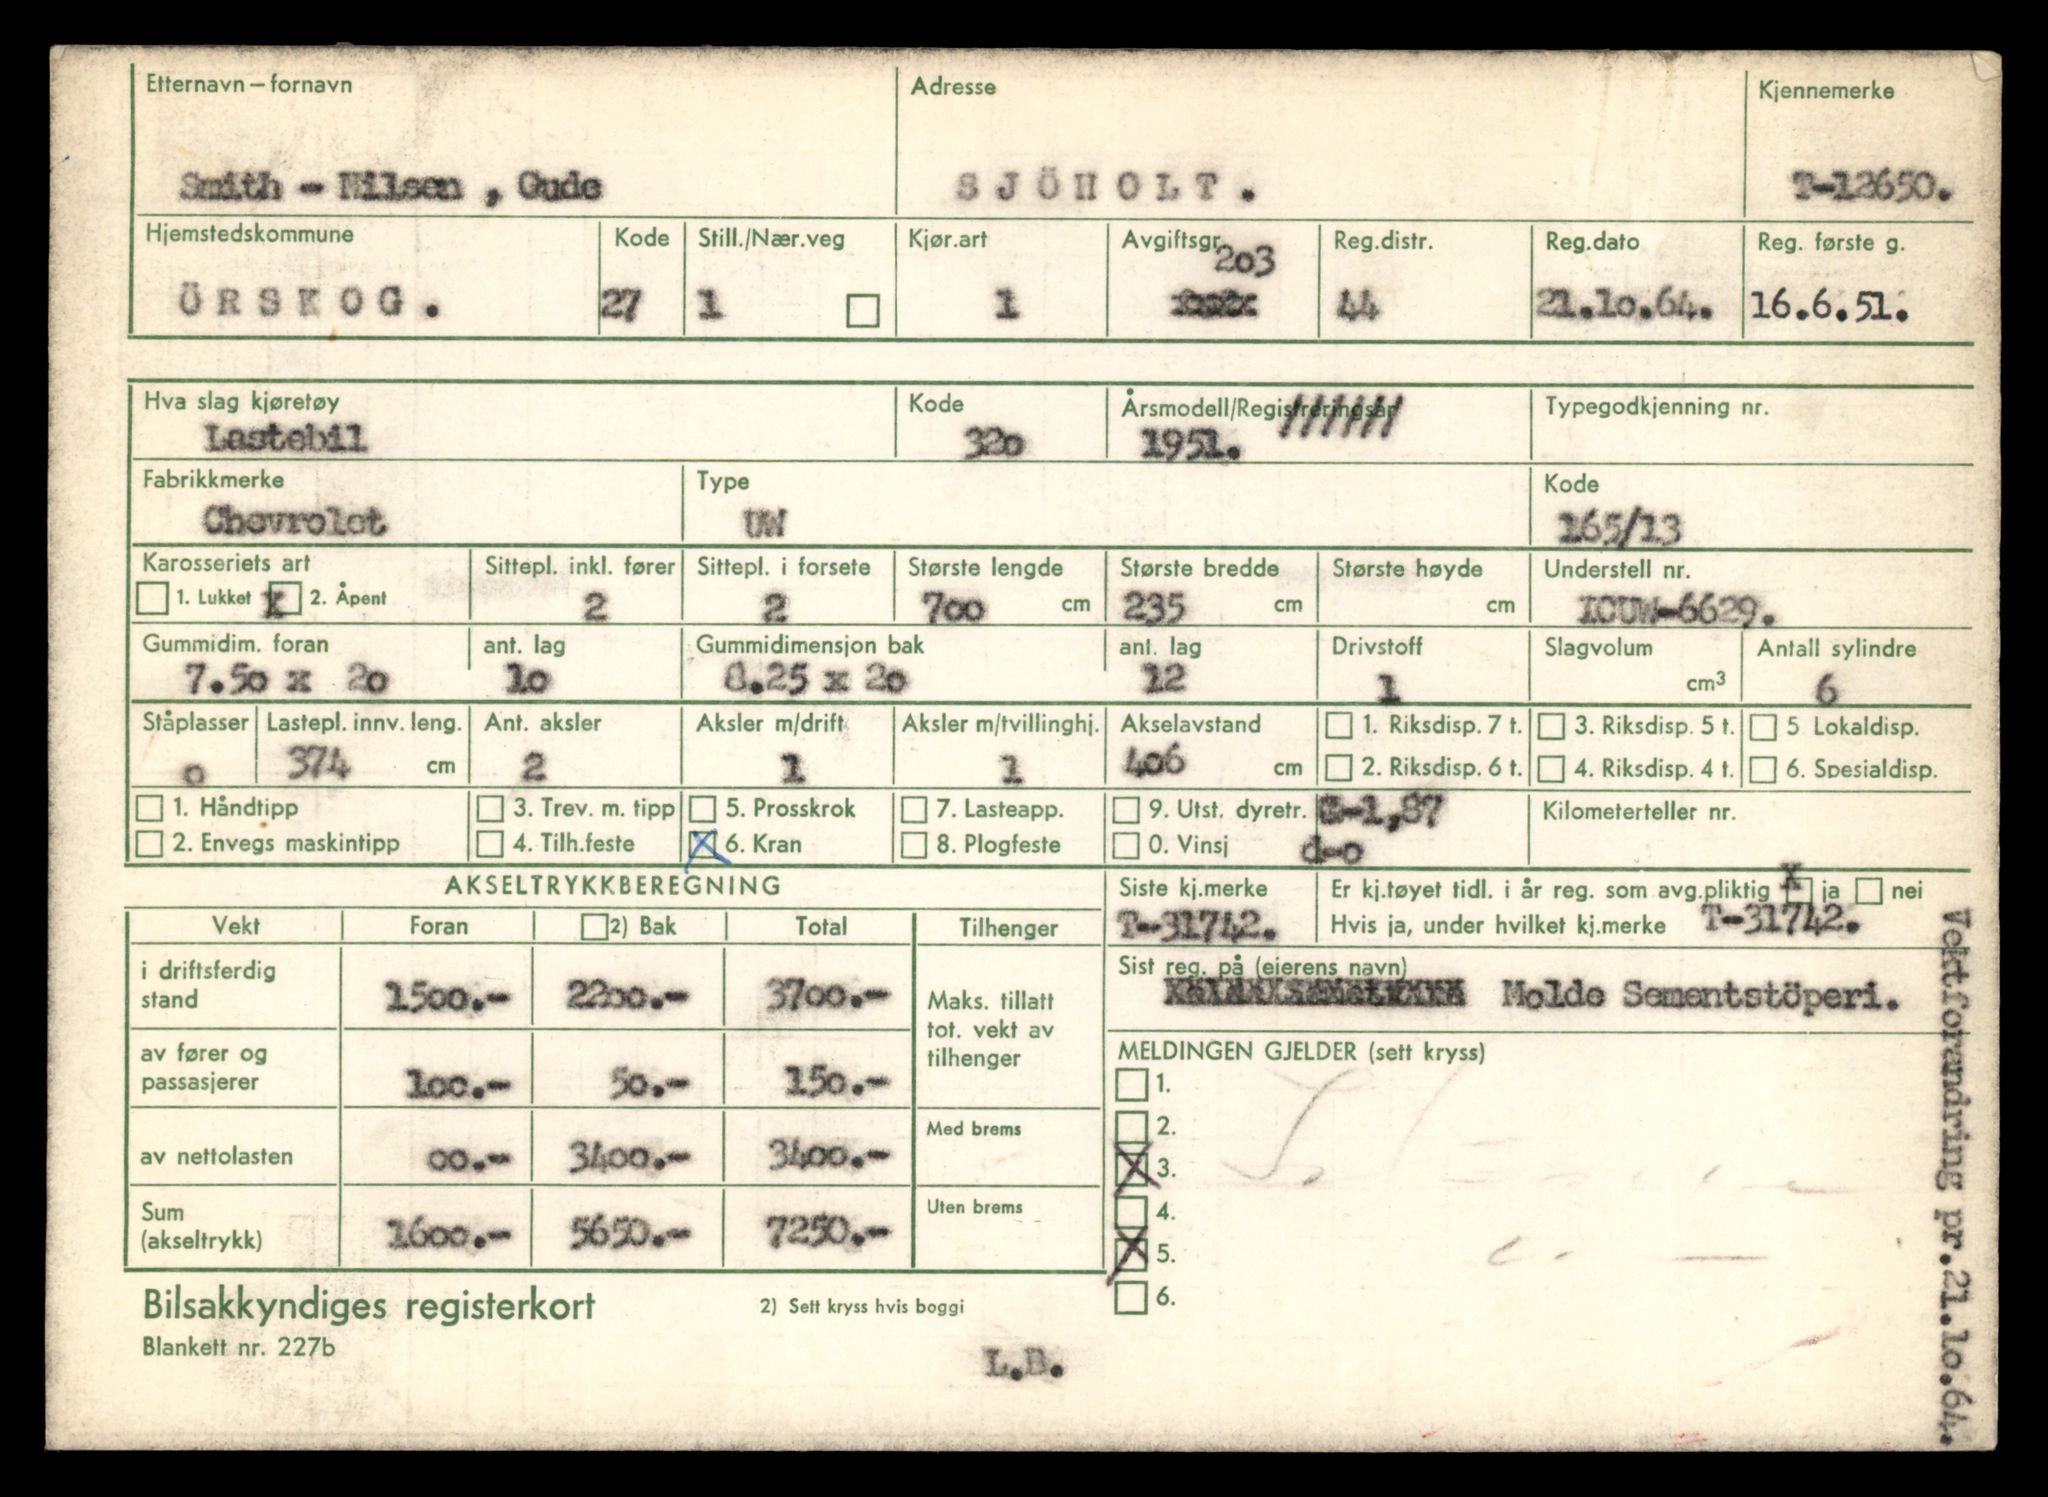 Etternavn – fornavn Adresse Kjennemerke
Smith - Nilsen, Gude SJÖHOLT. T-12650.
Hjemstedskommune Kode Still./Nær.veg Kjør.art Avgiftsgr. Reg.distr. Reg.dato Reg. første g.
203
ÖRSKOG. 27 1 1 44 21.10.64. 16.6.51.
Hva slag kjøretøy Kode Årsmodell/Registreringsår Typegodkjenning nr.
Lastebil 320 1951.
Fabrikkmerke Type Kode
Chevrolet UW 165/13
Karosseriets art Sittepl. inkl. fører Sittepl. i forsete Største lengde Største bredde Største høyde Understell nr.
1. Lukket x 2. Åpent 2 2 700 cm 235 cm cm ICUW-6629.
Gummidim. foran ant. lag Gummidimensjon bak ant. lag Drivstoff Slagvolum Antall sylindre
7.50 x 20 10 8.25 x 20 12 1 cm3 6
Ståplasser Lastepl. innv. leng. Ant. aksler Aksler m/drift Aksler m/tvillinghj. Akselavstand 1. Riksdisp. 7 t. 3. Riksdisp. 5 t. 5 Lokaldisp.
0 374 cm 2 1 1 406 cm 2. Riksdisp. 6 t. 4. Riksdisp. 4 t. 6. Spesialdisp.
1. Håndtipp 3. Trev. m. tipp 5. Prosskrok 7. Lasteapp. 9. Utst. dyretr. S-1,87 Kilometerteller nr.
2. Envegs maskintipp 4. Tilh.feste X 6. Kran 8. Plogfeste 0. Vinsj d-o
AKSELTRYKKBEREGNING Siste kj.merke Er kj.tøyet tidl. i år reg. som avg.pliktig x ja nei
Vekt Foran 2) Bak Total Tilhenger T-31742. Hvis ja, under hvilket kj.merke T-31742.
i driftsferdig stand 1500.- 2200.- 3700.- Maks. tillatt tot. vekt av tilhenger
Sist reg. på (eierens navn)
Molde Sementstöperi.
av fører og passasjerer 100.- 50.- 150.-
MELDINGEN GJELDER (sett kryss)
1.
2.
av nettolasten 00.- 3400.- 3400.- Med brems
X 3.
4.
Sum (akseltrykk) 1600.- 5650.- 7250.- Uten brems
X 5.
6.
Bilsakkyndiges registerkort 2) Sett kryss hvis boggi
Blankett nr. 227b
L.B.
Vektforandring pr.21.10.64.